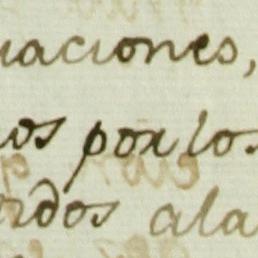 uaciones,
os por los
rdos ala